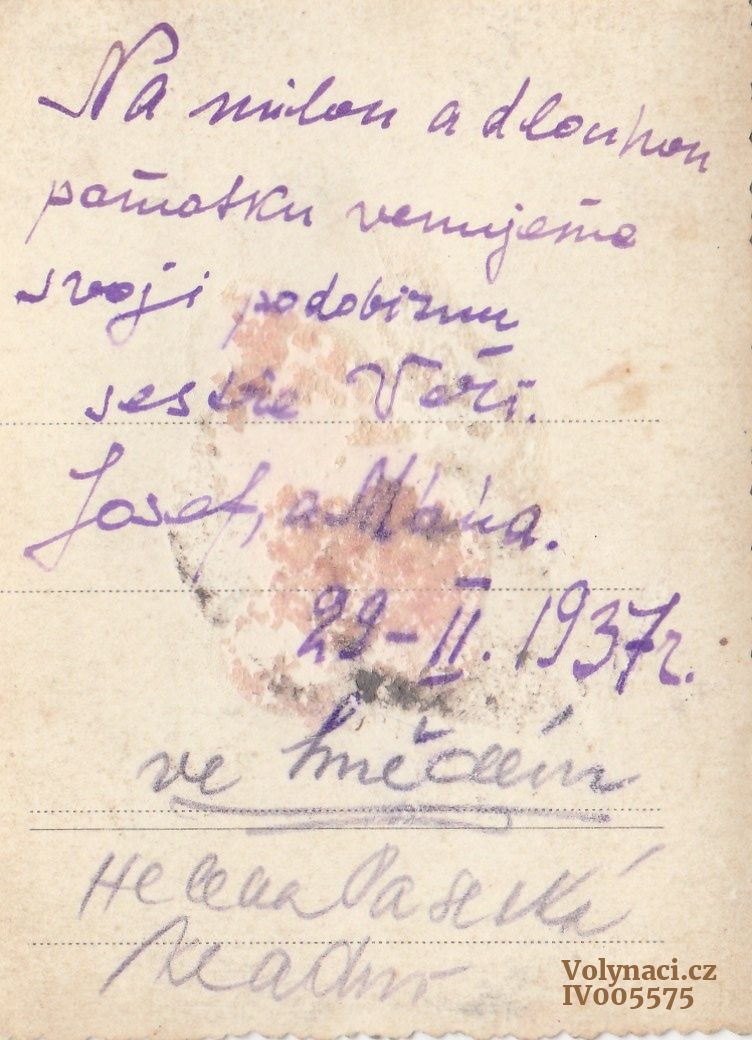 Na milou a dlouhou
památku venujeme
svoji podobiznu
sestře Věři.
Josef, a Máňa.
29-II. 1937r.
ve hnědém
Helena Pasecká
Volynaci.cz
IV005575